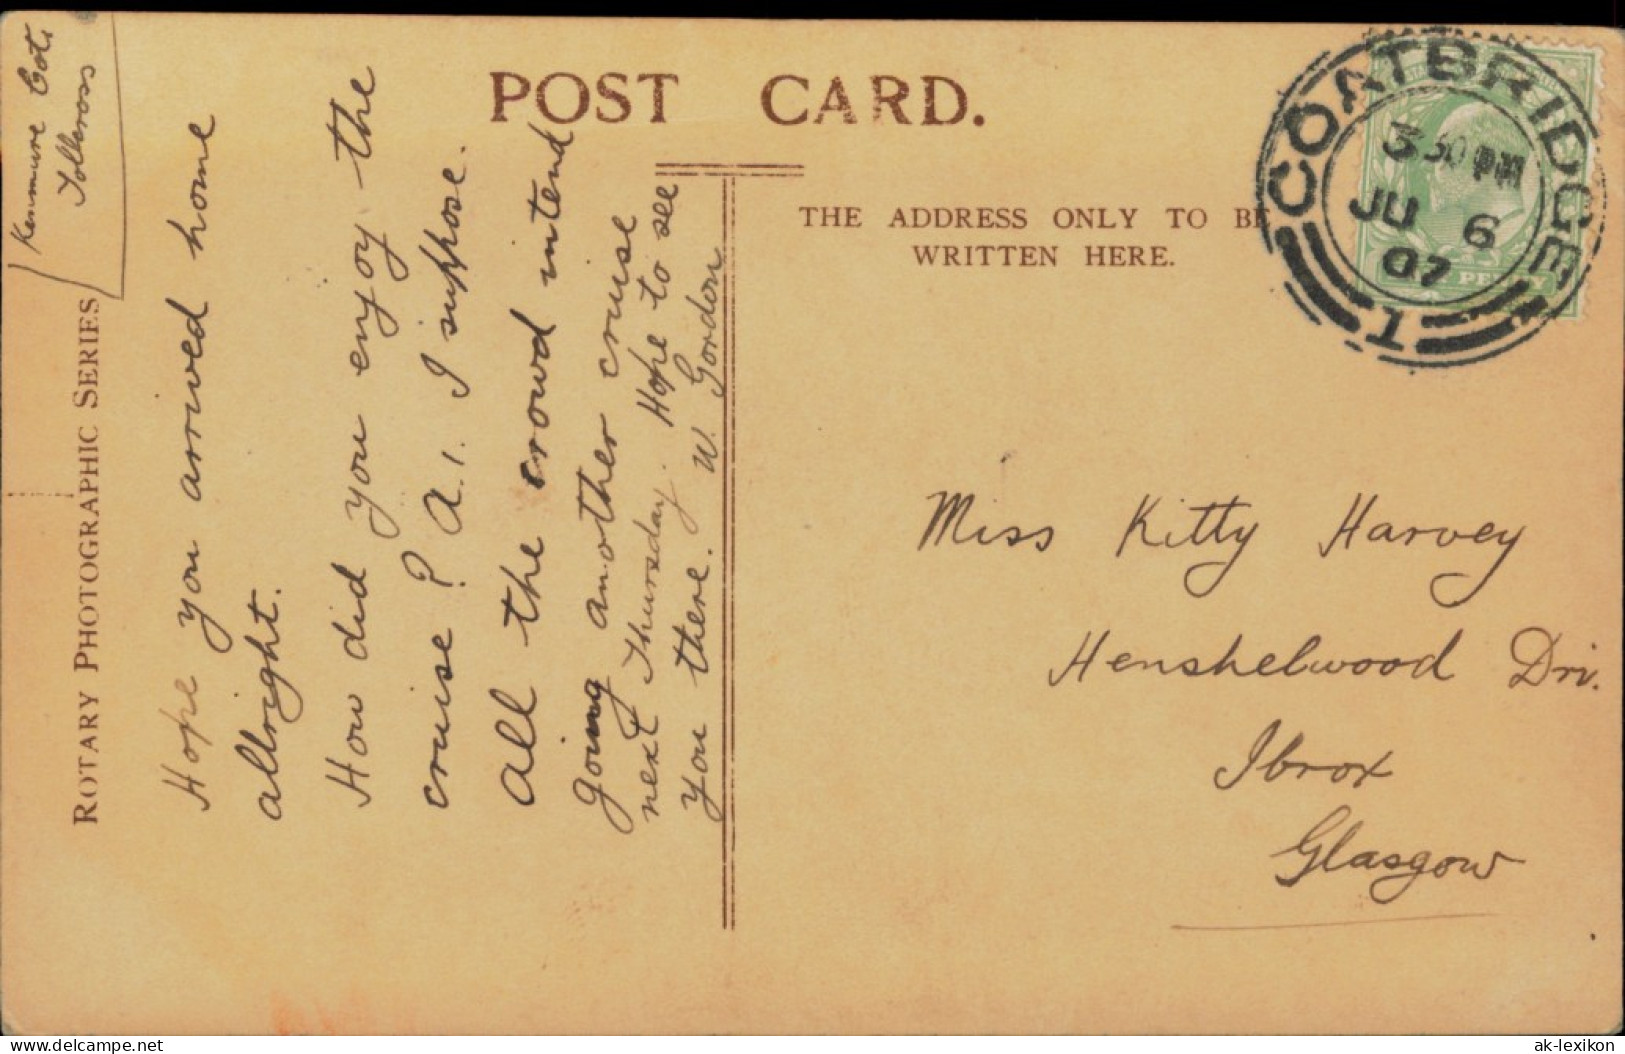 Kenmure Cot.
Tollcross
POST CARD.
THE ADDRESS ONLY TO BE
WRITTEN HERE.
COATBRIDGE
3 30 PM
JU 6
07
1
PENNY
ROTARY PHOTOGRAPHIC SERIES
Hope you arrived home
allright.
How did you enjoy the
cruise? A.1. I suppose.
All the crowd intend
going another cruise
next Thursday. Hope to see
you there. W. Gordon
Miss Kitty Harvey
Henshelwood Dri.
Ibrox
Glasgow
www.delcampe.net
ak-lexikon